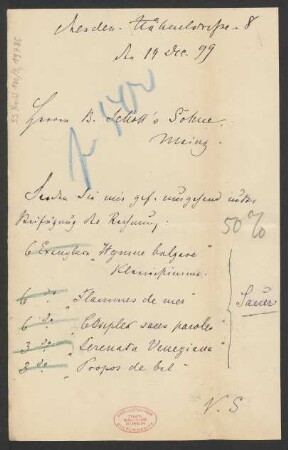 Dresden. Hähnelstrasse 8
den 14 Dec. 99
Herren B. Schott's Söhne.
Mainz.
Senden Sie mir gef. umgehend unter
Beifügung der Rechnung:
50%
6 Exemplare "Hymne bulgare"
Klavierstimme.
6 do "Flammes de mer"
6 do "Couplet sans paroles"
3 do "Serenata Veneziana"
3 do "Propos de bal"
Sauer
V. S